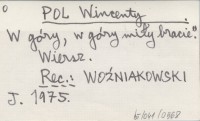 o
POL Wincenty.
W góry, w góry miły bracie."
Wiersz.
Rec.: WOŹNIAKOWSKI
J. 1975.